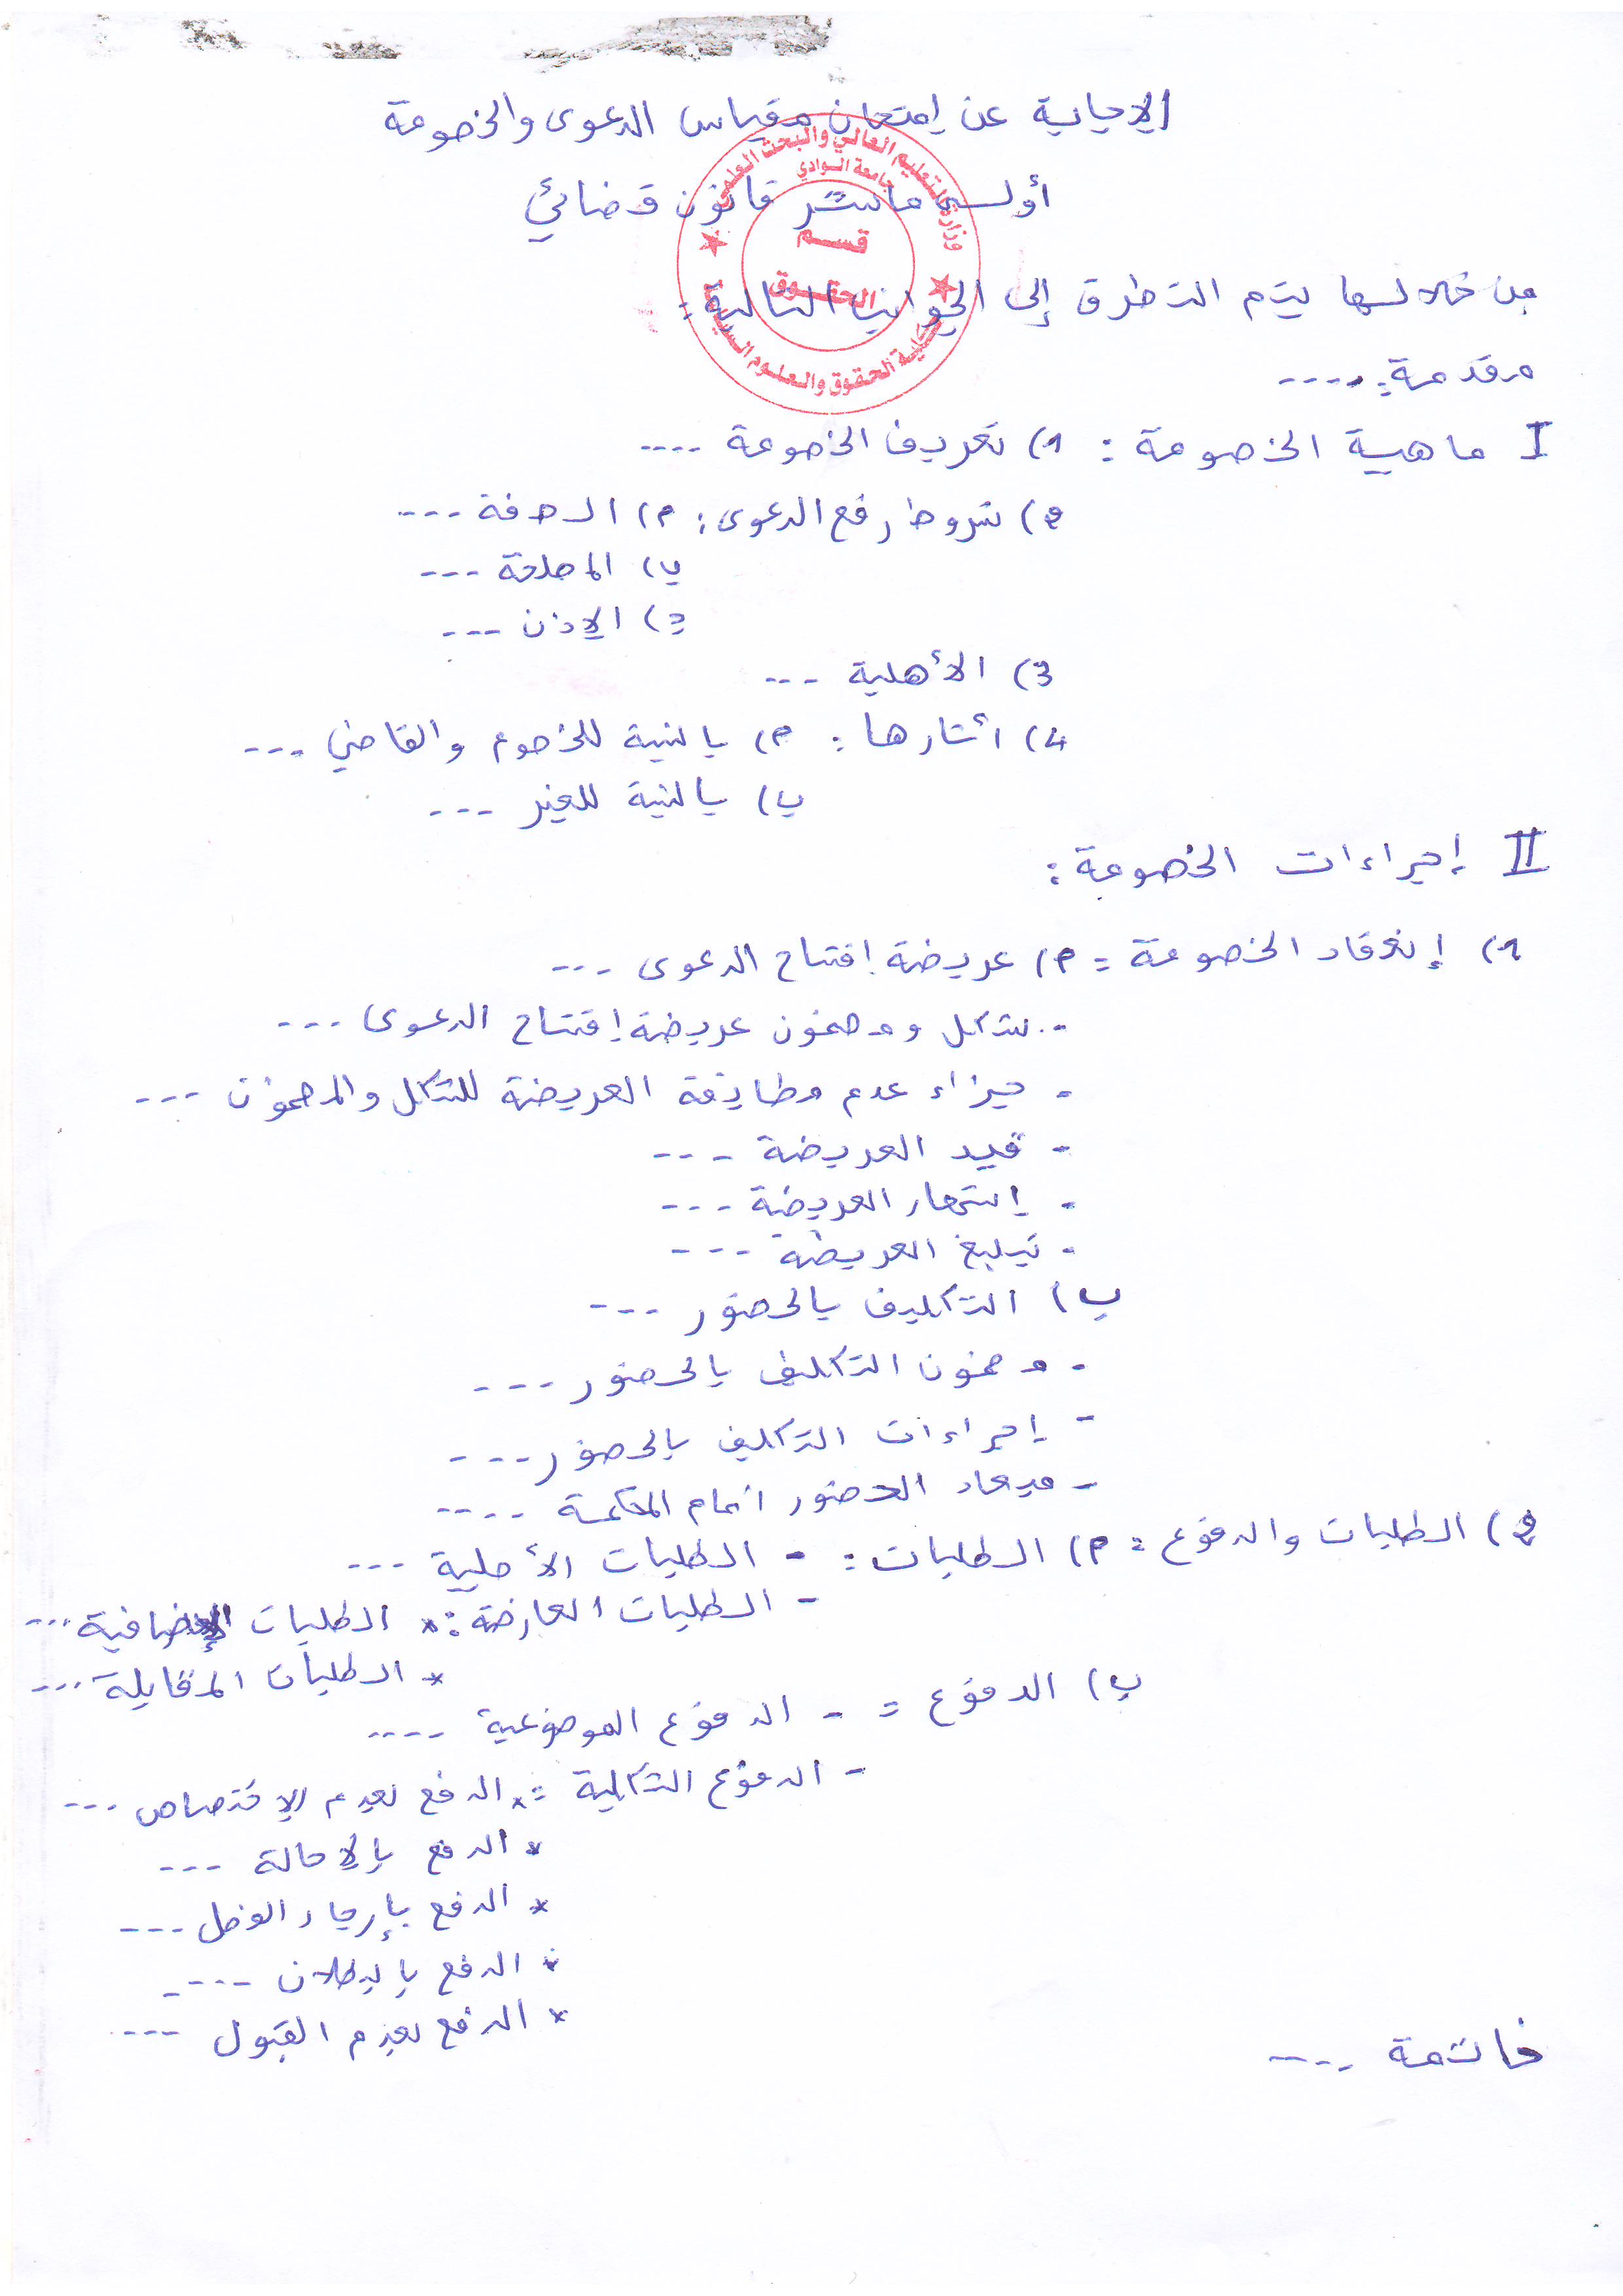 الإجابة عن إمتحان مقياس الدعوى والخصومة
أولى ماستر قانون قضائي
وزارة التعليم العالي والبحث العلمي
جامعة الوادي
قسم
الحقوق
كلية الحقوق والعلوم السياسية
من خلالها يتم التطرق إلى الجوانب التالية:
مقدمة: ----
I ماهية الخصومة: 1) تعريف الخصومة ----
2) شروط رفع الدعوى: أ) الصفة ---
ب) المصلحة ---
ج) الإذن ---
3) الأهلية ---
4) أثارها: أ) بالنسبة للخصوم والقاضي ---
ب) بالنسبة للغير ---
II إجراءات الخصومة:
1) إنعقاد الخصومة: أ) عريضة إفتتاح الدعوى ---
- شكل ومضمون عريضة إفتتاح الدعوى ---
- جزاء عدم مطابقة العريضة للشكل والمضمون ---
- قيد العريضة ---
- إشهار العريضة ---
- تبليغ العريضة ---
ب) التكليف بالحضور ---
- مضمون التكليف بالحضور ---
- إجراءات التكليف بالحضور ---
- ميعاد الحضور أمام المحكمة ----
2) الطلبات والدفوع: أ) الطلبات: - الطلبات الأصلية ---
- الطلبات العارضة: * الطلبات الإضافية ---
* الطلبات المقابلة ---
ب) الدفوع: - الدفوع الموضوعية ----
- الدفوع الشكلية: * الدفع بعدم الإختصاص ---
* الدفع بالإحالة ---
* الدفع بإرجاء الفصل ---
* الدفع بالبطلان ----
* الدفع بعدم القبول ---
خاتمة ----